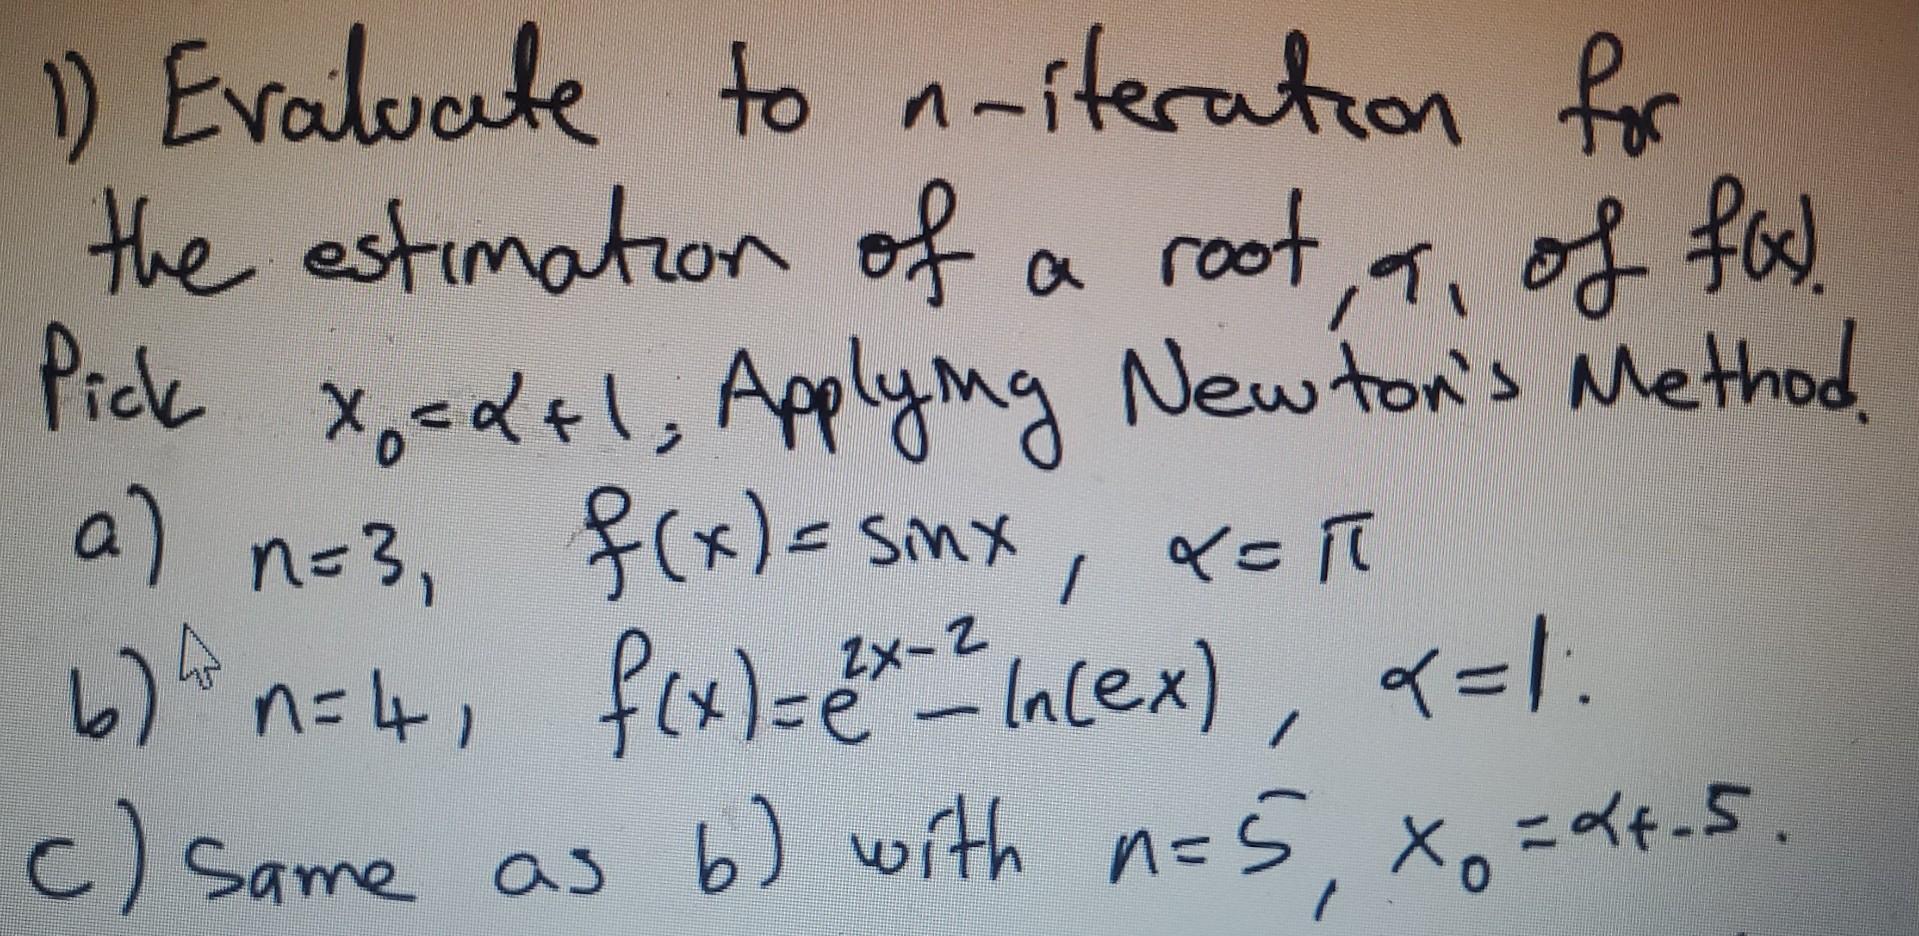 1) Evaluate to n-iteration for
the estimation of a root, α, of f(x).
Pick x₀ = α + 1, Applying Newton's Method.
a) n=3, f(x)= sinx, α= π
b) n=4, f(x)=e²ˣ⁻² – ln(ex), α=1.
c) Same as b) with n=5, x₀ = α+.5.